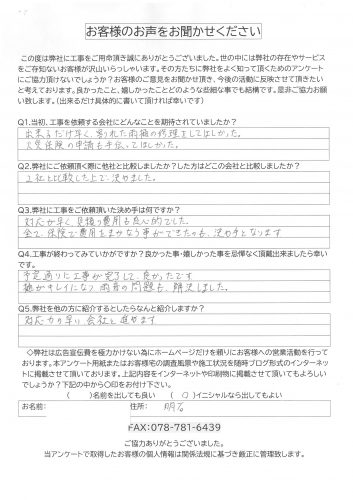 お客様のお声をお聞かせください
この度は弊社に工事をご用命頂き誠にありがとうございました。世の中には弊社の存在やサービス
をご存知ないお客様が沢山いらっしゃいます。その方たちに弊社をよく知って頂くためのアンケート
にご協力頂けないでしょうか?お客様のご意見をお聞かせ頂き、今後の活動に反映させて頂きたい
と考えております。良かったこと、嬉しかったことどのような些細な事でも結構です。是非ご協力お願
い致します。(出来るだけ具体的に書いて頂ければ幸いです)
Q1.当初、工事を依頼する会社にどんなことを期待されていましたか?
出来るだけ早く、割れた雨樋の修理をしてほしかった。
火災保険の申請も手伝ってほしかった。
Q2.弊社にご依頼頂く際に他社と比較しましたか?した方はどこの会社と比較しましたか?
2社と比較した上で、決めました。
Q3.弊社に工事をご依頼頂いた決め手は何ですか?
対応が早く、見積り費用も良心的でした。
全て、保険で費用をまかなう事ができたのも、決め手となります
Q4.工事が終わってみていかがですか?良かった事・嬉しかった事を忌憚なく頂戴出来ましたら幸い
です。
予定通りに工事が完了して、良かったです
樋がキレイになり、雨音の問題も、解決しました。
Q5.弊社を他の方に紹介するとしたらなんと紹介しますか?
対応力の早い会社と進めます
◇弊社は広告宣伝費を極力かけない為にホームページだけを頼りにお客様への営業活動を行って
おります。本アンケート用紙またはお客様宅の調査風景や施工状況を随時ブログ形式のインターネッ
トに掲載させて頂いております。上記内容をインターネットや印刷物に掲載させて頂いてもよろしい
でしょうか?下記の中から〇印をお付け下さい。
( )名前を出しても良い (〇)イニシャルなら出してもよい
お名前: 住所:
FAX:078-781-6439
ご協力ありがとうございました。
当アンケートで取得したお客様の個人情報は関係法規に基づき厳正に管理致します。